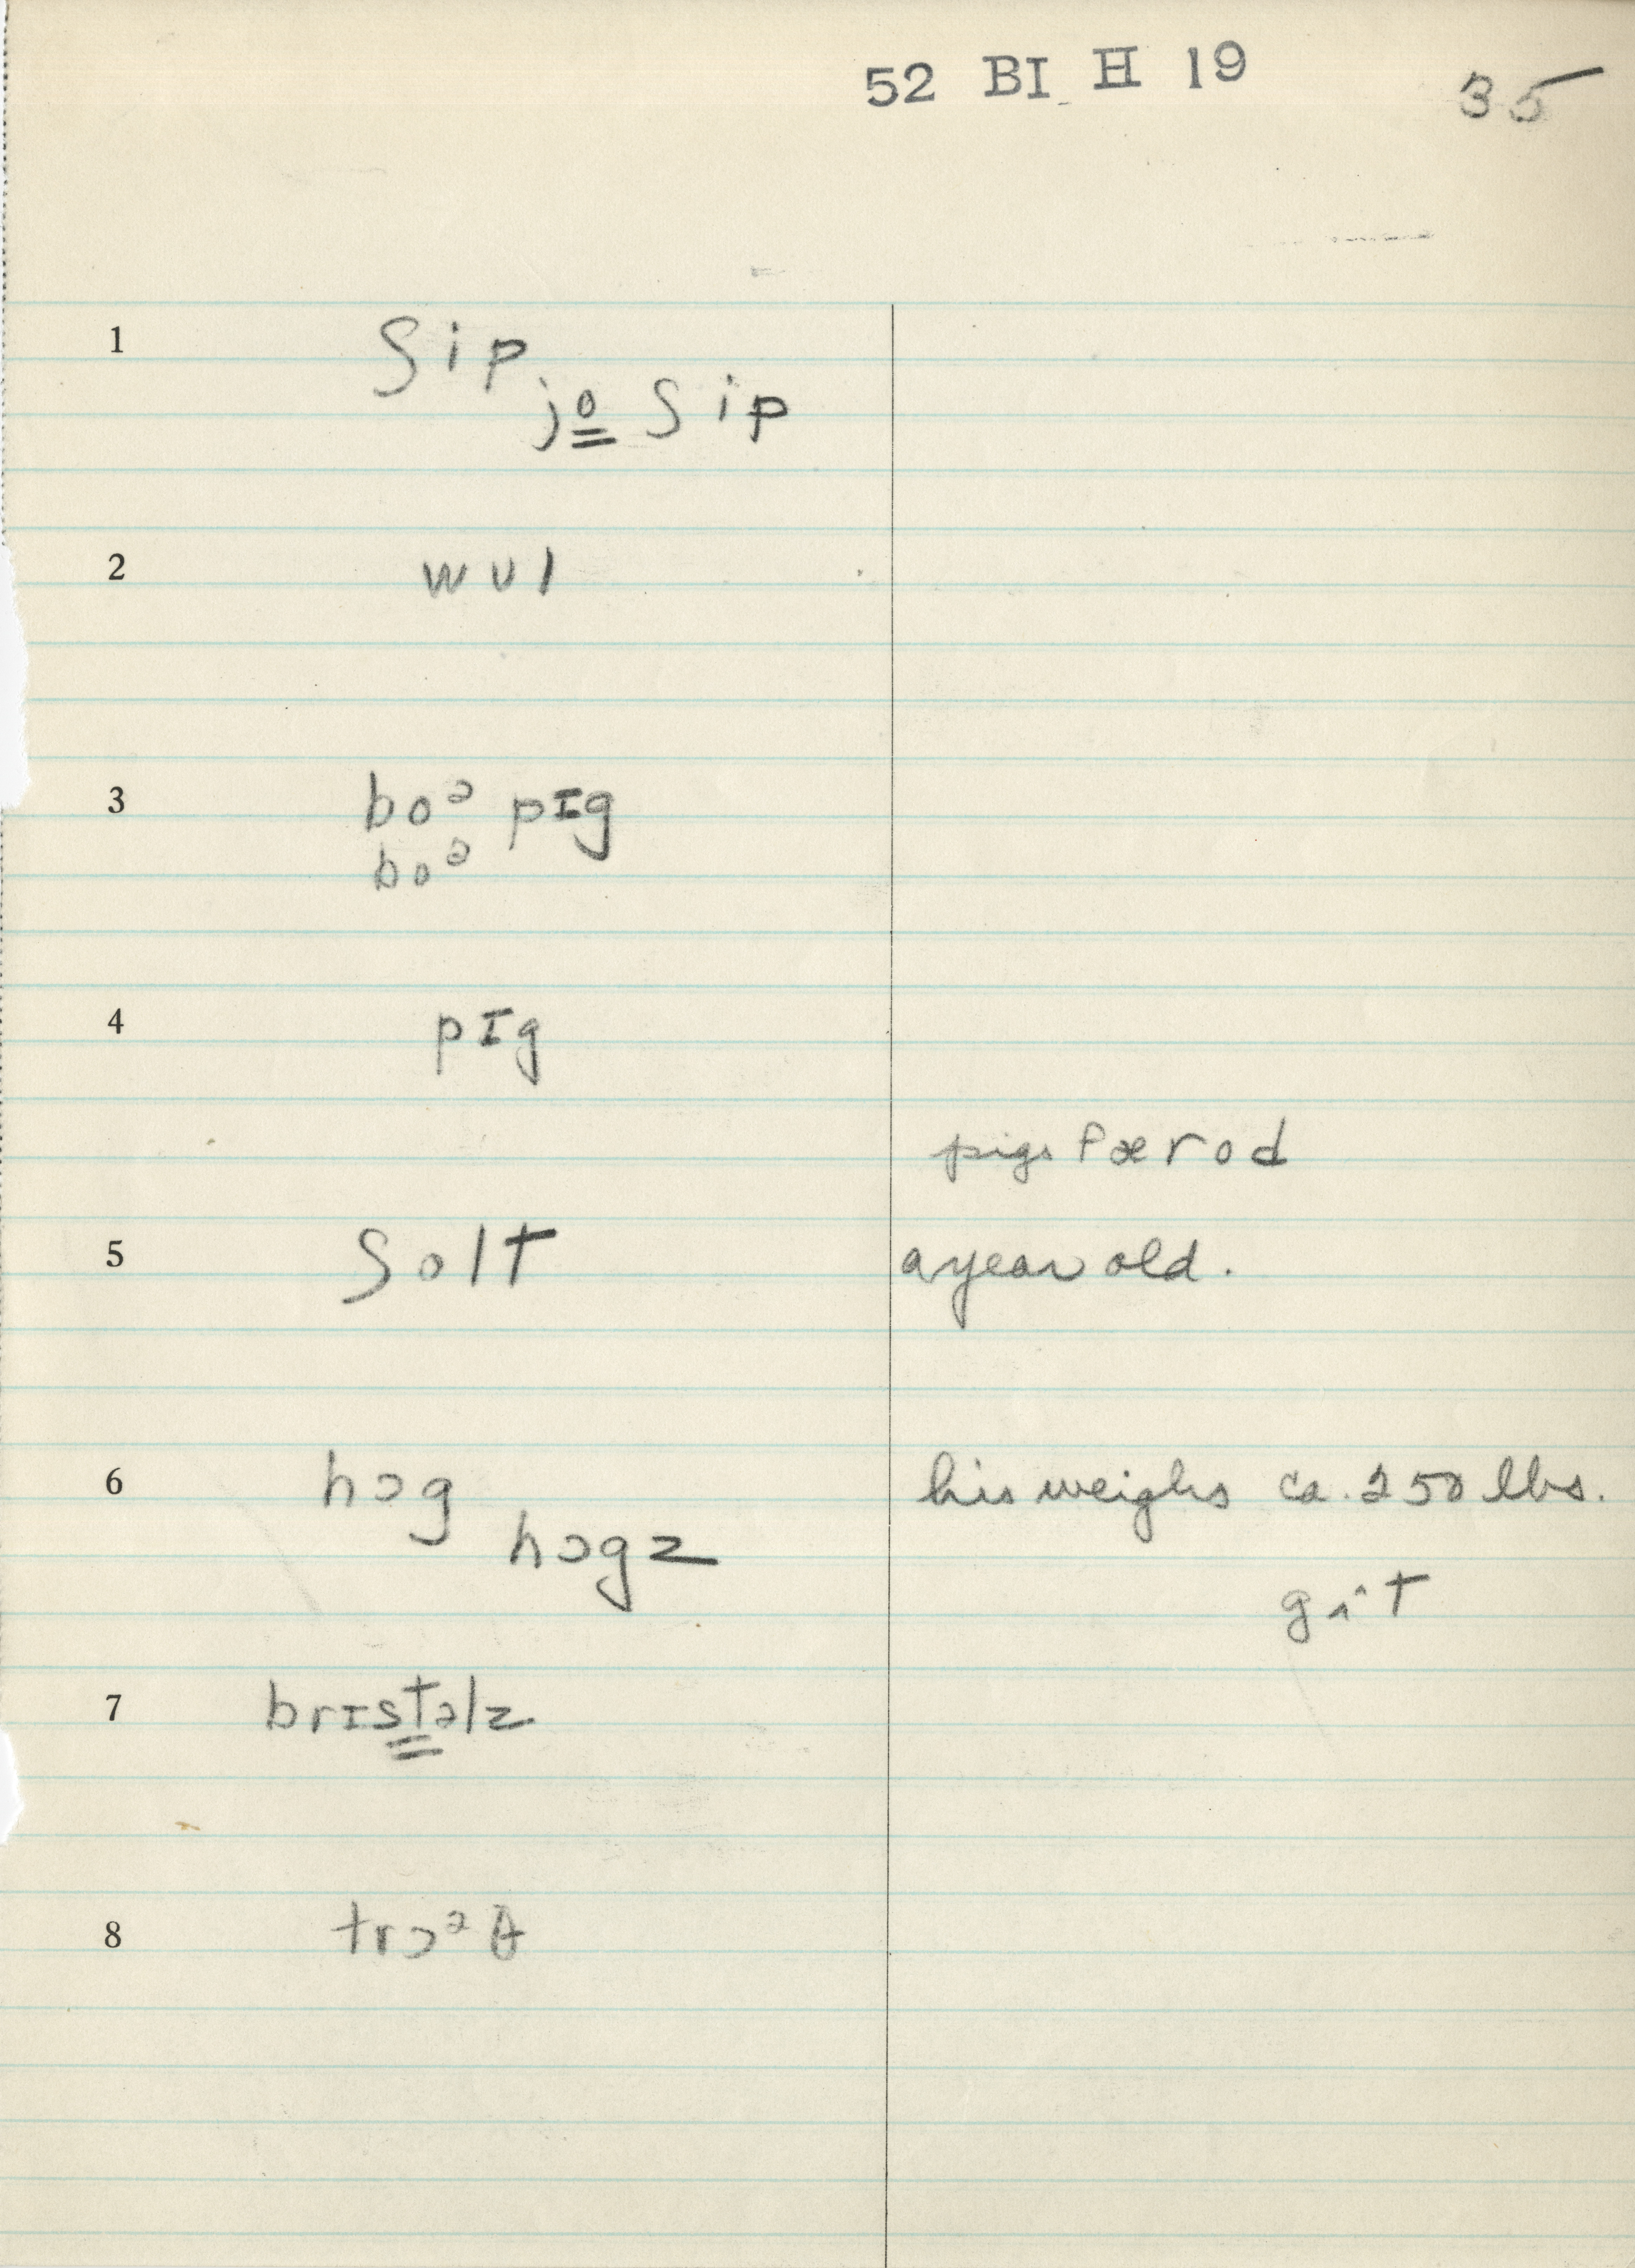 52 BI H 19
35
1 ʃip
jo ʃip
2 wʊl
3 boᵊ pɪg
boᵊ
4 pɪg
pigs færod
5 ʃolt a year old.
6 hɔg his weighs ca. 250 lbs.
hɔgz
7 brɪstəlz
8 trɔᵊθ